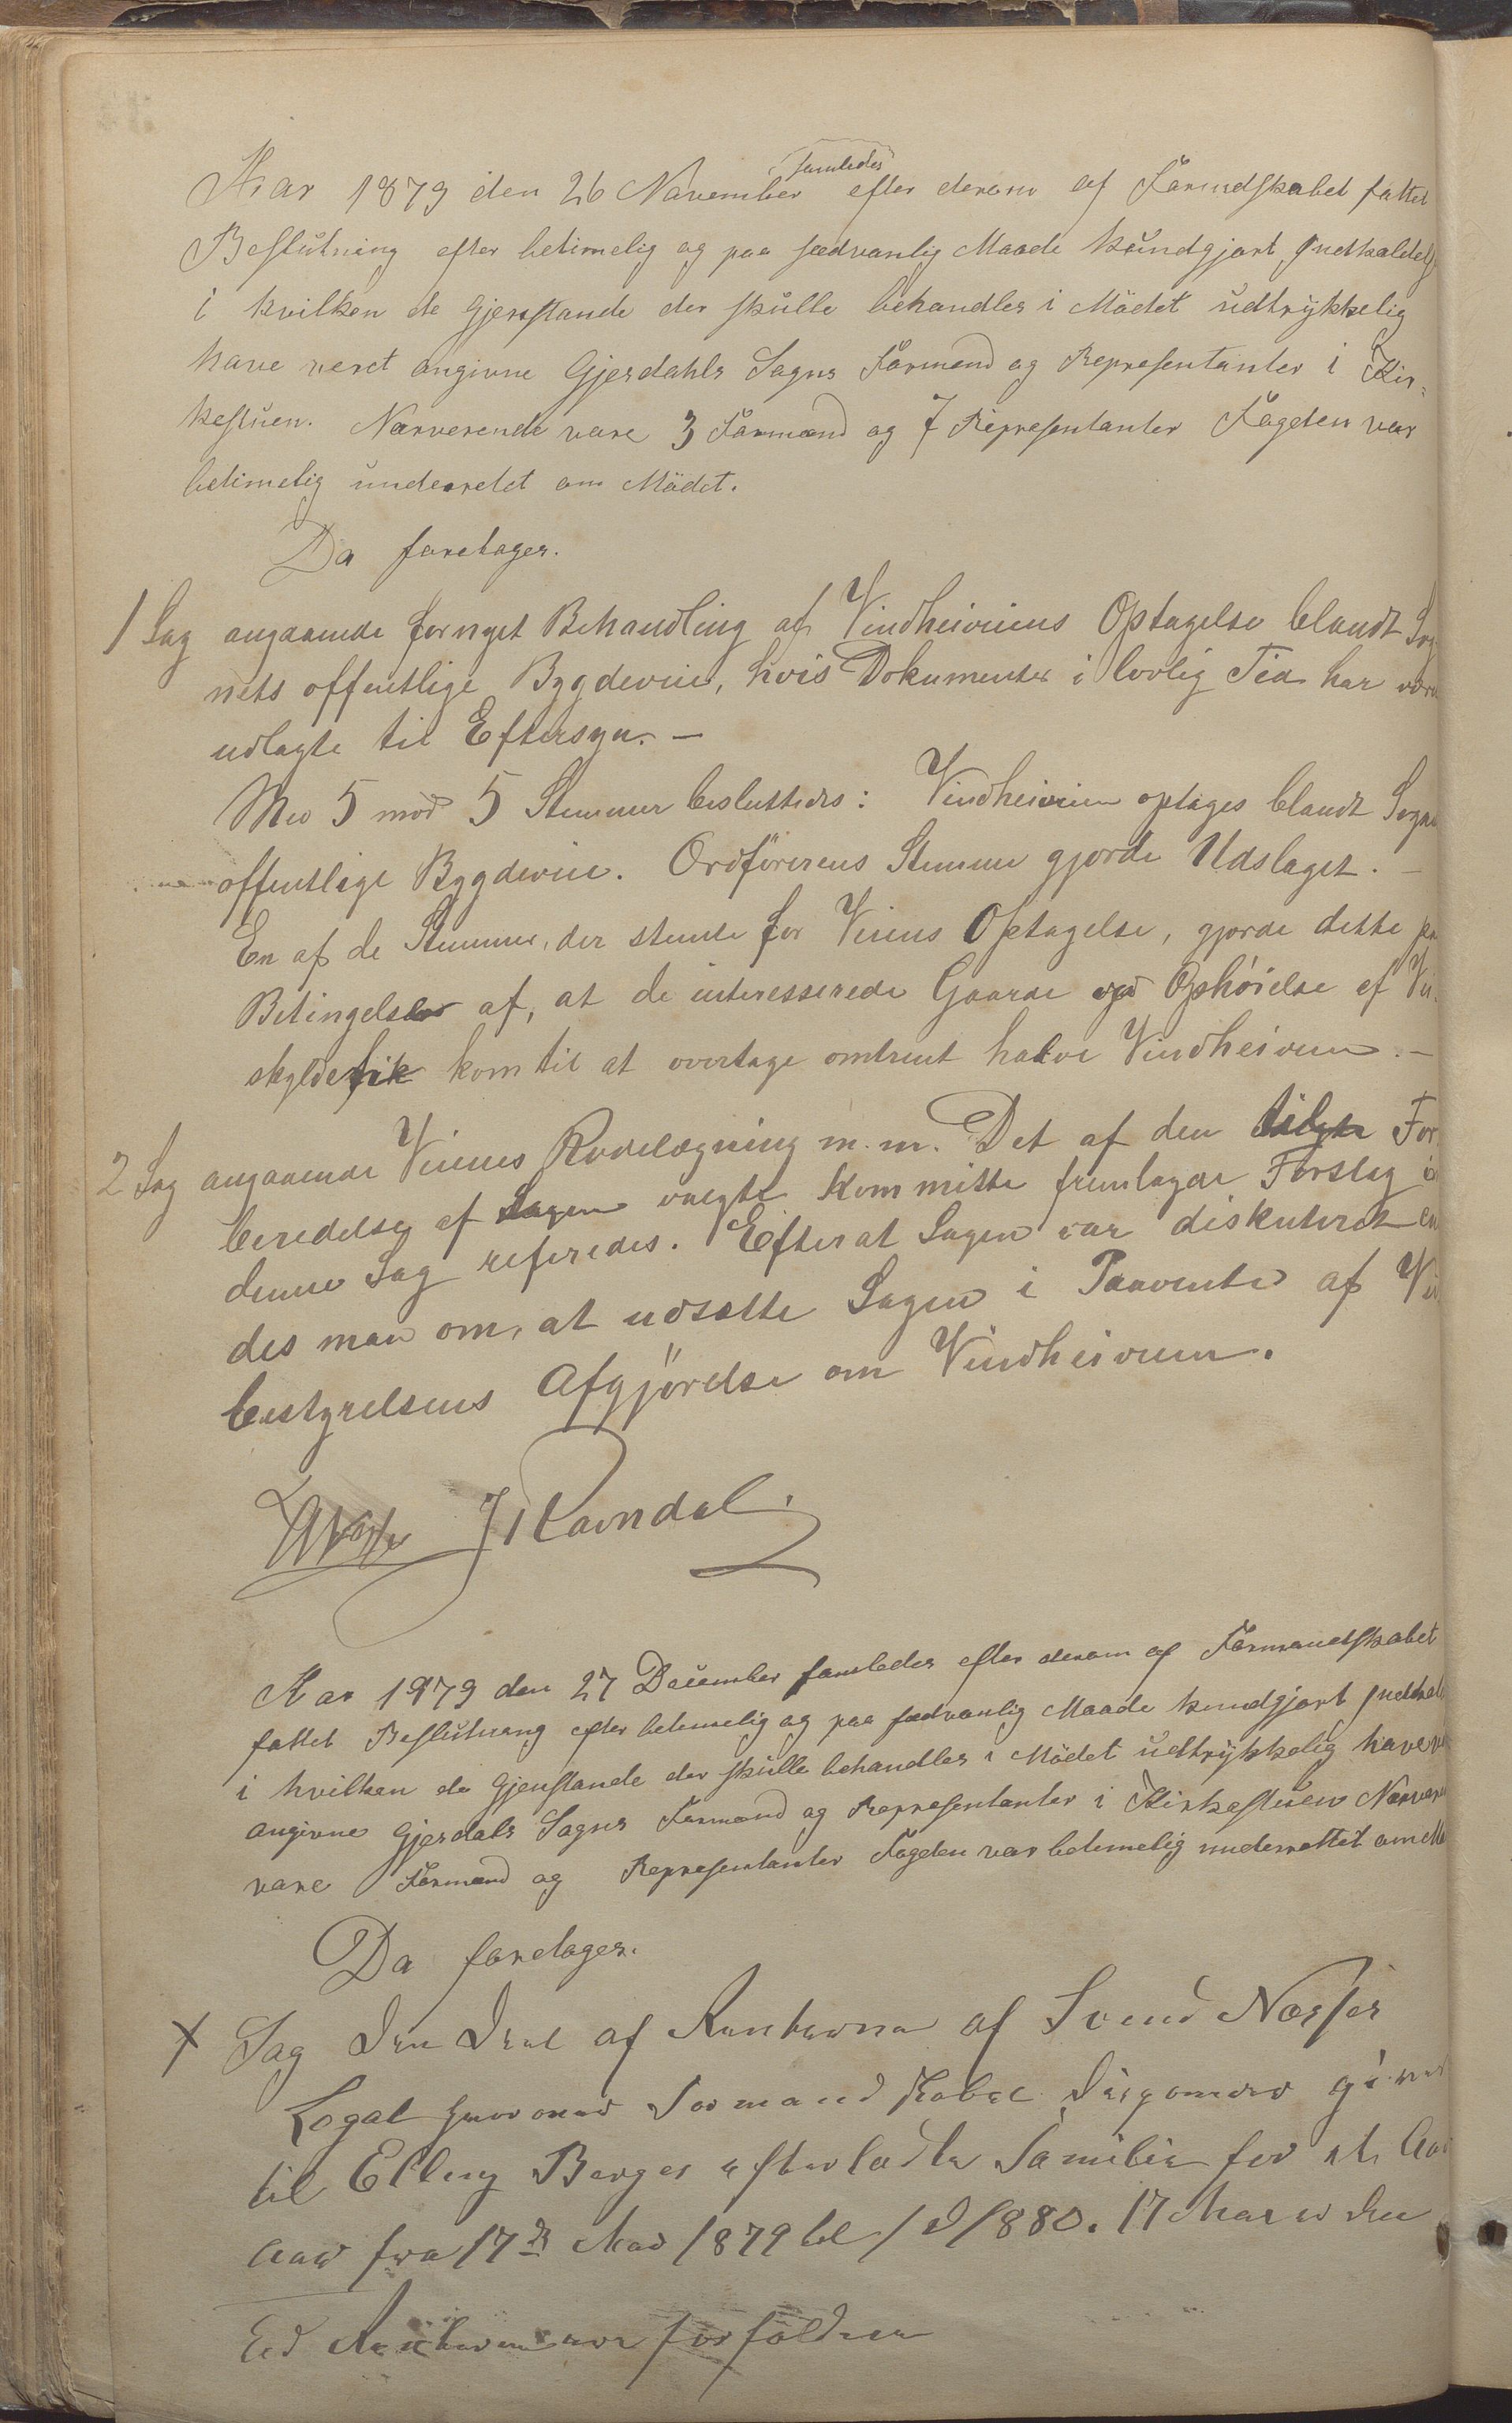 Aar 1879 den 26 November samledes efter derom af Formdskabet fattet
Beslutning efter betimelig og paa sædvanlig Maade kundgjort Indkaldels
i hvilken de Gjenstande der skulle behandles i Mödet udtrykkelig
have veret angivne Gjesdahls Sogns Formend og Representanter i Kir-
kestuen. Nærverende vare 3 Formænd og 7 Representanter Fogden var
betimelig underretet om Mödet.
Da foretages.
1 Sag angaaende fornyet Behandling af Vindheiveiens Optagelse blandt Sog
nets offentlige Bygdeveie, hvis Dokumenter i lovlig Tid har være
udlagte til Eftersyn. —
Med 5 mod 5 Stemmer besluttedes: Vindheiveien optages blandt Sogne
offentlige Bygdeveie. Ordförerens Stemme gjorde Udslaget. —
En af de Stemmer, der stemte for Veiens Optagelse, gjorde dette pa
Betingelse af, at de interesserede Gaarde ved Ophöielse af Vei
skyld fik kom til at overtage omtrent halve Vindheiveien. —
2 Sag angaaende Veienes Rodelægning m. m. Det af den For
beredelse af Sagen valgte Kommitte fremlagde Forslag i
denne Sag refereredes. Efter at Sagen var diskuteret en
des man om, at udsætte Sagen i Paavente af Vei
bestyrelsens Afgjörelse om Vindheiveien.
J Ravndal.
Aar 1879 den 27 December samledes efter derom af Formandskabet
fattet Beslutning efter betimelig og paa sædvanlig Maade kundgjort Indkald
i hvilken de Gjenstande der skulle behandles i Mödet udtrykkelig have ve
angivne Gjesdals Sogns Formænd og Representanter i Kirkestuen Nærvere
vare Formænd og Representanter Fogden var betimelig underrettet om Mö
Da foretages.
X Sag Den Deel af Renterne af Svend Næsses
Legat hvorover Formandskabet Disponerer gives
til Elling Berges efterladte Familie for et Aar
Aar fra 17de Mar 1879 til 1880. 17 Mar
Renterne forfalden